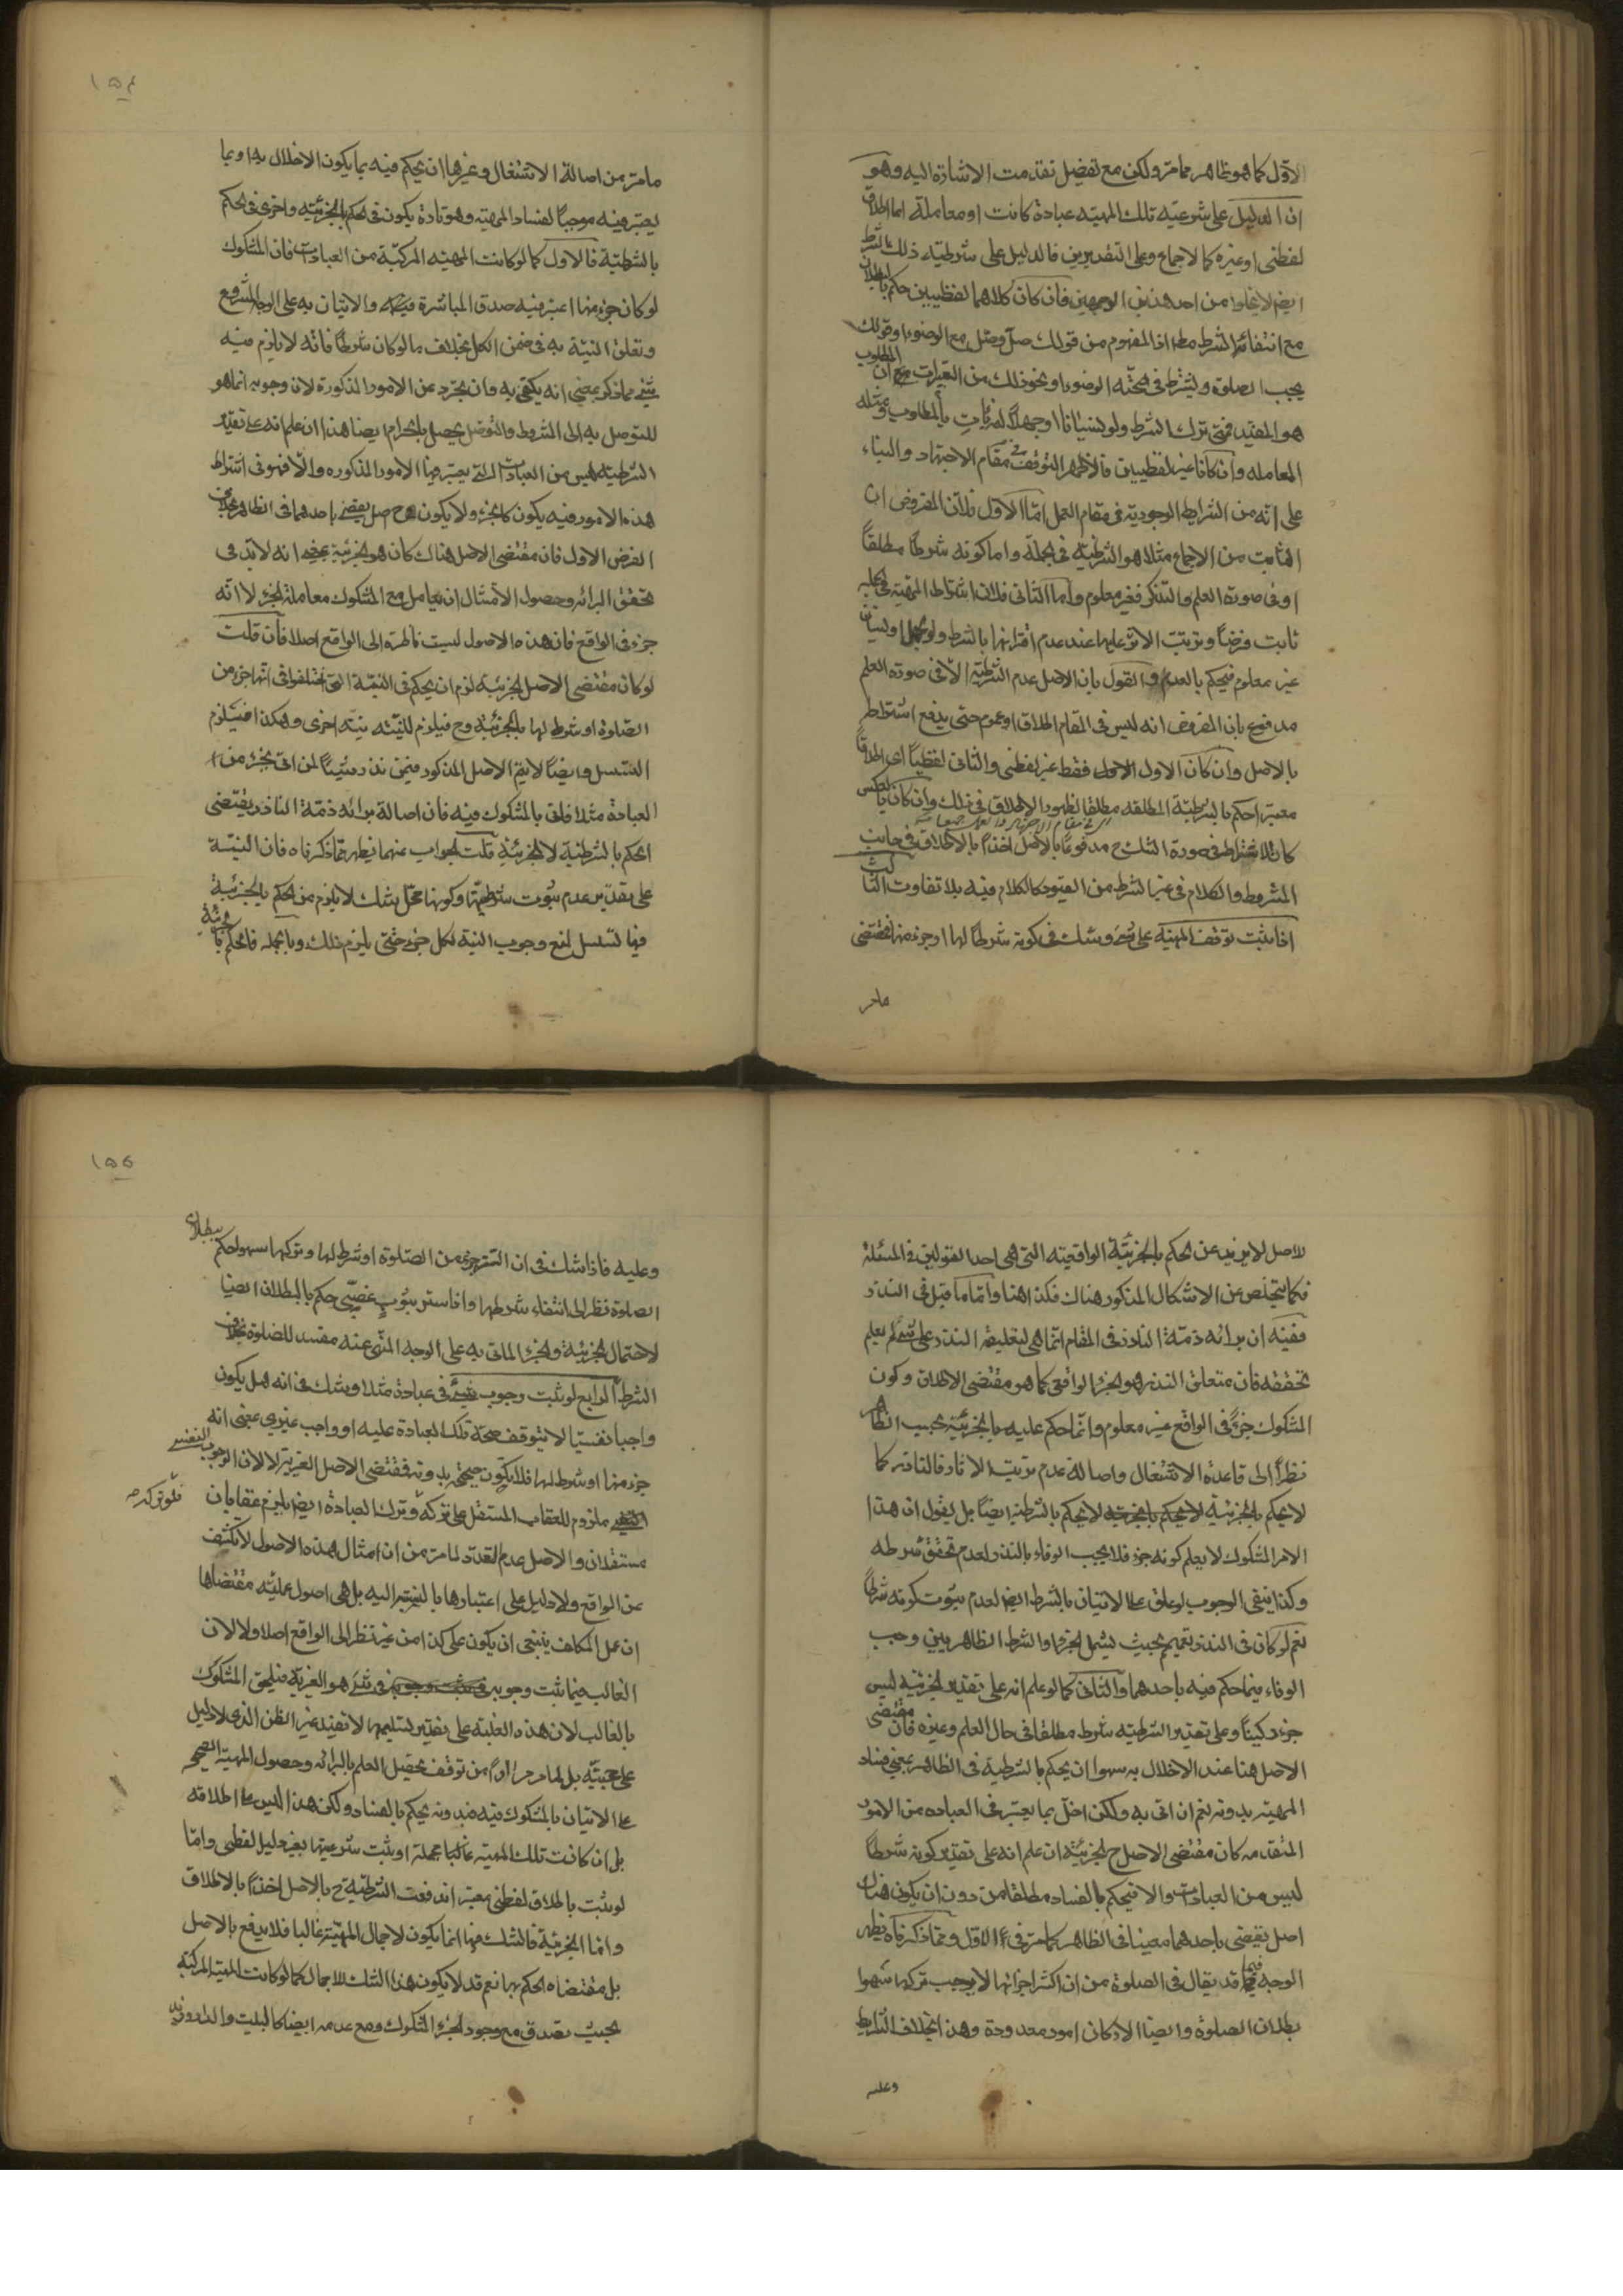 الاوّل كما هو ظاهر مما مرّ ولكن مع تفصيل تقدمت الاشارة اليه وهو
ان الدليل على شرعيّة تلك المهيّة عبادة كانت او معاملة اما اطلاق
لفظى او غيره كالاجماع وعلى التقديرين فالدليل على شرطية ذلك الشرط
ايضا لا يخلو من احد هذين الوجهين فان كان كلاهما لفظيين حكم بالبطلان
مع انتفاء الشرط مطا اذ المفهوم من قولك صلّ وصلّ مع الوضوء او قولك
يجب الصلوة ويشترط فى صحّته الوضوء او نحو ذلك من العبارات مع ان المطلوب
هو المقيد فمتى ترك الشرط ولو نسيانا او جهلا لم يأت بالمطلوب ومثله
المعامله وان كانا غير لفظيين فالاظهر التوقف فى مقام الاجتهاد والبناء
على انه من الشرايط الوجودية فى مقام العمل امّا الاوّل فلان المفروض ان
الثابت من الاجماع مثلا هو الشرطيّة فى الجملة واما كونه شرطا مطلقاً
او فى صورة العلم والتذكر فغير معلوم وامّا الثانى فلان اشتراط المهيّة فى الجملة
ثابت فرضاً وترتب الاثر عليها عند عدم اقترانها بالشرط ولو بجهل او نسيان
غير معلوم فيحكم بالعدم والقول بان الاصل عدم الشرطيّة الّا فى صورة العلم
مدفوع بان المفروض انه ليس فى المقام اطلاق او عموم حتى يدفع اشتراط
بالاصل وان كان الاول فقط غير لفظى والثانى لفظياً اى اطلاقاً
معتبرا حكم بالشرطيّة المطلقه مطلقا لظهور الاطلاق فى ذلك وان كان بالعكس
كان الاشتراط فى صورة الشك ح مدفوعاً بالاصل اخذاً بالاطلاق فى جانب
المشروط والكلام فى غير الشرط من القيود كالكلام فيه بلا تفاوت الثالث
اذا ثبت توقف المهيّة على شئ وشك فى كونه شرطاً لها او جزء منها فمقتضى
مامر
١٥٤
ما مرّ من اصالة الاشتغال وغيرها ان يحكم فيه بما يكون الاخلال به او بما
يعتبر فيه موجبا لفساد المهيّة وهو تارة يكون فى الحكم بالجزئيّة واخرى فى الحكم
بالشرطيّة فالاول كما لو كانت المهيّة المركبّة من العبادات فان المشكوك
لو كان جزء منها اعتبر فيه صدق المباشرة والاتيان به على الوجه المشروع
وتعلق النيّة به فى ضمن الكل بخلاف ما لو كان شرطاً فانّه لا يلزم فيه
شئ مما ذكر بمعنى انه يكتفى به وان تجرّد عن الامور المذكورة لان وجوبه انما هو
للتوصل به الى المشروط والتوصل يحصل بالحرام ايضا هذا ان علم انه على تقدير
الشرطيّة ليس من العبادات التى يعتبر فيها الامور المذكوره والّا فهو فى اشتراط
هذه الامور فيه يكون كالجزء ولا يكون هنا ح اصل يقضى باحدهما فى الظاهر بخلاف
الفرض الاول فان مقتضى الاصل هناك كان هو الجزئيّة بمعنى انه لابدّ فى
تحقق البرائه وحصول الامتثال ان يعامل مع المشكوك معاملة الجزء لا انّه
جزء فى الواقع فان هذه الاصول ليست ناظرة الى الواقع اصلا فان قلت
لو كان مقتضى الاصل الجزئيّة لزم ان يحكم فى النيّة التى اختلفوا فى انها جزء من
الصّلوة او شرط لها بالجزئيّة وح فيلزم للنيّة نيّة اخرى وهكذا فيتسلزم
التسلسل وايضاً لا يتمّ الاصل المذكور فيمن نذر شيئاً لمن اتى بجزء من
العبادة مثلا فاتى بالمشكوك فيه فان اصالة برائه ذمّة الناذر يقتضى
الحكم بالشرطيّة لا الجزئيّة قلت الجواب عنهما يظهر مما ذكرناه فان النيّة
على تقدير عدم ثبوت شرطيّتها وكونها محلّ شك لا يلزم من الحكم بالجزئيّة
فيها تسلسل لمنع وجوب النية لكل جزء حتى يلزم ذلك وبالجمله فالحكم بالجزئية
للاصل لا يزيد عن الحكم بالجزئيّة الواقعيّة التى هى احد القولين فى المسئلة
فكما يتخلّص عن الاشكال المذكور هناك فكذا هنا وامّا ما قيل فى النذر
ففيه ان برائه ذمّة الناذر فى المقام انّما هى لتعليقه النذر على شئ لم يعلم
تحققه فان متعلق النذر هو الجزء الواقعى كما هو مقتضى الاطلاق وكون
المشكوك جزءً فى الواقع غير معلوم وانّما حكم عليه بالجزئيّة بحسب الظاهر
نظراً الى قاعدة الاشتغال واصالة عدم ترتب الاثار فالناذر كما
لا يحكم بالجزئيّة لا يحكم بالشرطيّة ايضاً بل يقول ان هذا
الامر المشكوك لا يعلم كونه جزء فلا يجب الوفاء بالنذر لعدم تحقق شرطه
وكذا ينتفى الوجوب لو علق على الاتيان بالشرط ايضا لعدم ثبوت كونه شرطاً
نعم لو كان فى النذر تعميم بحيث يشمل الجزء او الشرط الظاهريين وجب
الوفاء فيما حكم فيه باحدهما والثانى كما لو علم انه على تقدير الجزئيّة ليس
جزء ركنيّاً وعلى تقدير الشرطيّه شرط مطلقا فى حال العلم وغيره فان مقتضى
الاصل هنا عند الاخلال به سهوا ان يحكم بالشرطيّة فى الظاهر بمعنى فساد
المهيّة بدونه نعم ان اتى به ولكن اخلّ بما يعتبر فى العباده من الامور
المتقدمه كان مقتضى الاصل ح الجزئيّة ان علم انه على تقدير كونه شرطاً
ليس من العبادات والا فيحكم بالفساد مطلقا من دون ان يكون هناك
اصل يقضى باحدهما معينا فى الظاهر كما مرّ فى الاوّل ومما ذكرناه يظهر
الوجه فيما قد يقال فى الصلوة من ان اكثر اجزائها لا يوجب تركها سهوا
بطلان الصلوة وايضا الاركان امور معدودة وهذا بخلاف الشرايط
وعليه
١٥٥
وعليه فاذا شك فى ان التستر جزء من الصّلوة او شرط لها وتركها سهوا حكم ببطلان
الصلوة نظرا الى انتفاء شرطها واذا ستر بثوب غصبىّ حكم بالبطلان ايضا
لاحتمال الجزئيّة والجزء الماتى به على الوجه المنهى عنه مفسد للصلوة بخلاف
الشرط الرابع لو ثبت وجوب شئ فى عبادة مثلا وشك فى انه هل يكون
واجبا نفسيا لا يتوقف صحّة تلك العبادة عليه او واجب غيرى بمعنى انه
جزء منها او شرط لها فلا يكون صحيحة بدونه فمقتضى الاصل الغيريّة لا لان الوجوب النفسى
ملزوم للعقاب المستقل على تركه وترك العبادة ايضا يلزم عقابان
فلو تركه
مستقلان والاصل عدم التعدّد لما مرّ من ان امثال هذه الاصول لا تكشف
عن الواقع ولا دليل على اعتبارها بالنسبة اليه بل هى اصول عمليّه مقتضاها
ان عمل المكلف ينبغى ان يكون على كذا من غير نظر الى الواقع اصلا ولا لان
الغالب فيما ثبت وجوبه فى شئ هو الغيريّة فيلحق المشكوك
بالغالب لان هذه الغلبة على تقدير تسليمها لا تفيد غير الظن الذى لا دليل
على حجيّته بل لما مرّ من توقف تحصيل العلم بالبرائه وحصول المهيّة الصحيحه
على الاتيان بالمشكوك فيه فبدونه يحكم بالفساد ولكن هذا ليس على اطلاقه
بل ان كانت تلك المهيّة غالبا مجملة او ثبت شرعيتها بغير دليل لفظى وامّا
لو ثبت باطلاق لفظى معتبر اندفعت الشرطيّة ح بالاصل اخذاً بالاطلاق
وامّا الجزئيّة فالشك فيها انما يكون لاجمال المهيّة غالبا فلا يدفع بالاصل
بل مقتضاه الحكم بها نعم قد لا يكون هذا الشك للاجمال كما لو كانت المهيّة المركبّة
بحيث تصدق مع وجود الجزء المشكوك ومع عدمه ايضا كالبيت والدار وغيره